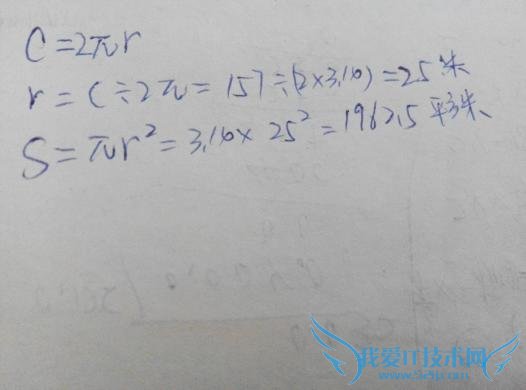 C=2πr
r=C÷2π=157÷(2×3.14)=25米
S=πr²=3.14×25²=1962.5平方米
我爱IT技术网
www.52ij.com